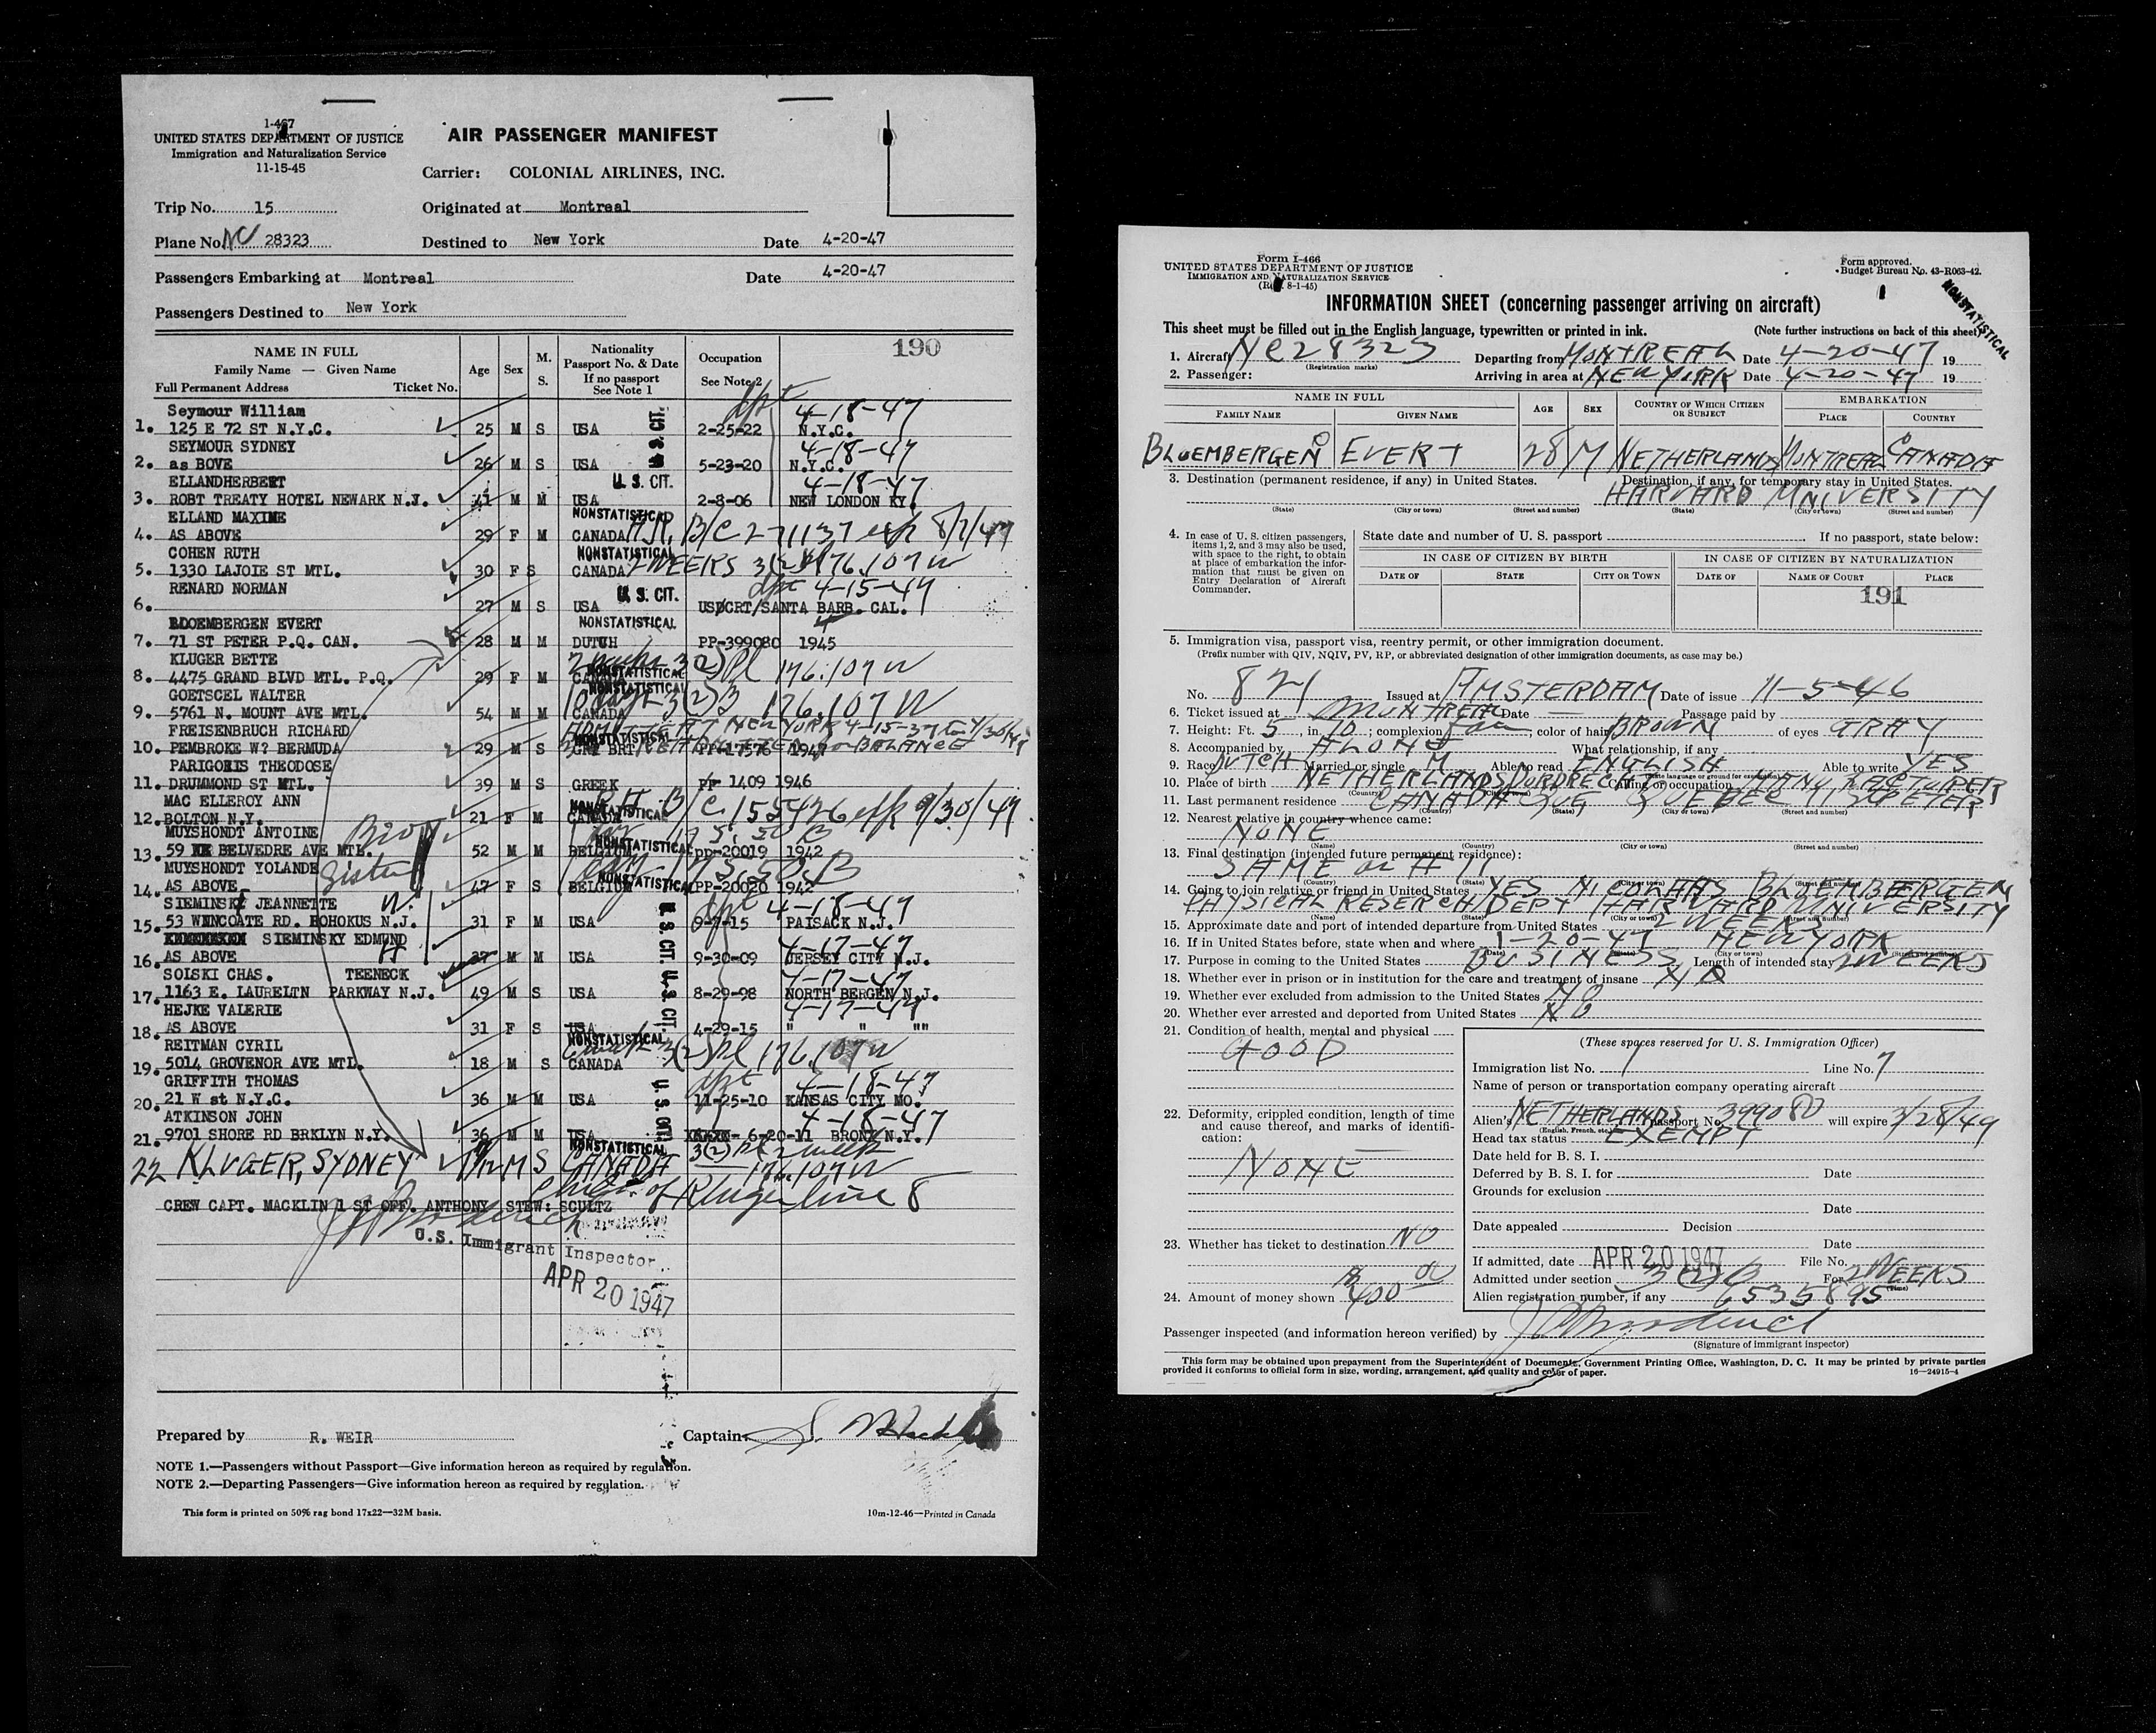 I-467
UNITED STATES DEPARTMENT OF JUSTICE
Immigration and Naturalization Service
11-15-45
AIR PASSENGER MANIFEST
Carrier: COLONIAL AIRLINES, INC.
Trip No. 15 Originated at Montreal
Plane No. NC 28323 Destined to New York Date 4-20-47
Passengers Embarking at Montreal Date 4-20-47
Passengers Destined to New York
190
NAME IN FULL
Family Name — Given Name
Full Permanent Address Ticket No.
Age Sex M. S.
Nationality
Passport No. & Date
If no passport
See Note 1
Occupation
See Note 2
Seymour William 4-18-47
1. 125 E 72 ST N.Y.C. 25 M S USA 2-25-22 N.Y.C.
SEYMOUR SYDNEY 4-18-47
2. as BOVE 26 M S USA 5-23-20 N.Y.C.
ELLANDHERBERT U. S. CIT. 4-18-47
3. ROBT TREATY HOTEL NEWARK N.J. 41 M M USA 2-8-06 NEW LONDON KY.
ELLAND MAXINE NONSTATISTICAL
4. AS ABOVE 29 F M CANADA B/C 271137 8/7/47
COHEN RUTH NONSTATISTICAL
5. 1330 LAJOIE ST MTL. 30 F S CANADA 2 WEEKS 3(2) 176.107 W
RENARD NORMAN U. S. CIT. dpt 4-15-47
6. 27 M S USA SANTA BARB. CAL.
BLOEMBERGEN EVERT NONSTATISTICAL
7. 71 ST PETER P.Q. CAN. 28 M M DUTCH PP-399080 1945
KLUGER BETTE 3(2) Pl 176.107 W
8. 4475 GRAND BLVD MTL. P.Q. 29 F M CANADA NONSTATISTICAL
GOETSCEL WALTER NONSTATISTICAL 10 days 3(2)B 176.107 W
9. 5761 N. MOUNT AVE MTL. 54 M M CANADA
FREISENBRUCH RICHARD NONSTATISTICAL
10. PEMBROKE W? BERMUDA 29 M S GRT BRT PP-17576 1947
PARIGORIS THEODOSE
11. DRUMMOND ST MTL. 39 M S GREEK PP 1409 1946
MAC ELLEROY ANN NONSTATISTICAL B/C 155426 9/30/47
12. BOLTON N.Y. 21 F M CANADA
MUYSHONDT ANTOINE Bro
13. 59 BELVEDRE AVE MTL. 52 M M BELGIUM NONSTATISTICAL pp-20019 1942
MUYSHONDT YOLANDE Sister
14. AS ABOVE 47 F S BELGIUM NONSTATISTICAL PP-20020 1942
SIEMINSKI JEANNETTE W dpt 4-18-47
15. 53 WNNCOATE RD. HOHOKUS N.J. 31 F M USA 9-7-15 PAISACK N.J.
SIEMINSKY EDMUND H 4-17-47
16. AS ABOVE 37 M M USA 9-30-09 JERSEY CITY N.J.
SOISKI CHAS. TEENECK 4-17-47
17. 1163 E. LAURELTN PARKWAY N.J. 49 M S USA 8-29-98 NORTH BERGEN N.J.
HEJKE VALERIE 4-17-47
18. AS ABOVE 31 F S USA 4-29-15 " " ""
REITMAN CYRIL NONSTATISTICAL 3(2) Pl 176.107 W
19. 5014 GROVENOR AVE MTL. 18 M S CANADA
GRIFFITH THOMAS dpt 4-18-47
20. 21 W st N.Y.C. 36 M M USA 11-25-10 KANSAS CITY MO.
ATKINSON JOHN 4-18-47
21. 9701 SHORE RD BRKLYN N.Y. 36 M M USA 6-20-11 BRONX N.Y.
NONSTATISTICAL 3(2) Pl 2 week
22 KLUGER, SYDNEY M S CANADA 176.107 W
Child of Kluger line 8
CREW CAPT. MACKLIN 1 ST OFF. ANTHONY STEW: SCULTZ
U.S. Immigrant Inspector
APR 20 1947
Prepared by R. WEIR Captain S. Macklin
NOTE 1.—Passengers without Passport—Give information hereon as required by regulation.
NOTE 2.—Departing Passengers—Give information hereon as required by regulation.
This form is printed on 50% rag bond 17x22—32M basis. 10m-12-46—Printed in Canada
Form I-466
UNITED STATES DEPARTMENT OF JUSTICE
IMMIGRATION AND NATURALIZATION SERVICE
(Rev. 8-1-45)
Form approved.
Budget Bureau No. 43-R063-42.
NONSTATISTICAL
INFORMATION SHEET (concerning passenger arriving on aircraft)
This sheet must be filled out in the English language, typewritten or printed in ink. (Note further instructions on back of this sheet)
1. Aircraft NC28323 Departing from MONTREAL Date 4-20-47 19
(Registration marks)
2. Passenger: Arriving in area at NEW YORK Date 4-20-47 19
NAME IN FULL AGE SEX COUNTRY OF WHICH CITIZEN OR SUBJECT EMBARKATION
FAMILY NAME GIVEN NAME PLACE COUNTRY
BLOEMBERGEN EVERT 28 M NETHERLANDS MONTREAL CANADA
3. Destination (permanent residence, if any) in United States. Destination, if any, for temporary stay in United States.
HARVARD UNIVERSITY
(State) (City or town) (Street and number) (State) (City or town) (Street and number)
4. In case of U. S. citizen passengers, items 1, 2, and 3 may also be used, with space to the right, to obtain at place of embarkation the information that must be given on Entry Declaration of Aircraft Commander.
State date and number of U. S. passport If no passport, state below:
IN CASE OF CITIZEN BY BIRTH IN CASE OF CITIZEN BY NATURALIZATION
DATE OF STATE CITY OR TOWN DATE OF NAME OF COURT PLACE
191
5. Immigration visa, passport visa, reentry permit, or other immigration document.
(Prefix number with QIV, NQIV, PV, RP, or abbreviated designation of other immigration documents, as case may be.)
No. 821 Issued at AMSTERDAM Date of issue 11-5-46
6. Ticket issued at MONTREAL Date — Passage paid by
7. Height: Ft. 5 in. 10; complexion Fair; color of hair BROWN of eyes GRAY
8. Accompanied by ALONE What relationship, if any
9. Race DUTCH Married or single M Able to read ENGLISH Able to write YES
10. Place of birth NETHERLANDS DORDRECHT Calling or occupation MANUFACTURER
11. Last permanent residence CANADA QUE QUEBEC 71 ST PETER
(Country) (State) (City or town) (Street and number)
12. Nearest relative in country whence came:
NONE
(Name) (Country) (City or town) (Street and number)
13. Final destination (intended future permanent residence):
SAME as # 11
(Country) (State) (City or town) (Street and number)
14. Going to join relative or friend in United States YES NICOLAAS BLOEMBERGEN
PHYSICAL RESERCH DEPT HARVARD UNIVERSITY
(Name) (State) (City or town) (Street and number)
15. Approximate date and port of intended departure from United States 2 WEEKS
16. If in United States before, state when and where 1-20-47 NEW YORK
17. Purpose in coming to the United States BUSINESS Length of intended stay 2 WEEKS
18. Whether ever in prison or in institution for the care and treatment of insane NO
19. Whether ever excluded from admission to the United States NO
20. Whether ever arrested and deported from United States NO
21. Condition of health, mental and physical
GOOD
22. Deformity, crippled condition, length of time and cause thereof, and marks of identification:
NONE
23. Whether has ticket to destination NO
24. Amount of money shown $400 00
(These spaces reserved for U. S. Immigration Officer)
Immigration list No. 1 Line No. 7
Name of person or transportation company operating aircraft
Alien's NETHERLANDS passport No. 399080 will expire 3/28/49
(English, French, etc.)
Head tax status EXEMPT
Date held for B. S. I.
Deferred by B. S. I. for Date
Grounds for exclusion
Date
Date appealed Decision
Date
If admitted, date APR 20 1947 File No.
Admitted under section 3(2)B For 2 WEEKS
(Time)
Alien registration number, if any 6535895
Passenger inspected (and information hereon verified) by
(Signature of immigrant inspector)
This form may be obtained upon prepayment from the Superintendent of Documents, Government Printing Office, Washington, D. C. It may be printed by private parties
provided it conforms to official form in size, wording, arrangement, and quality and color of paper. 16—24915-4